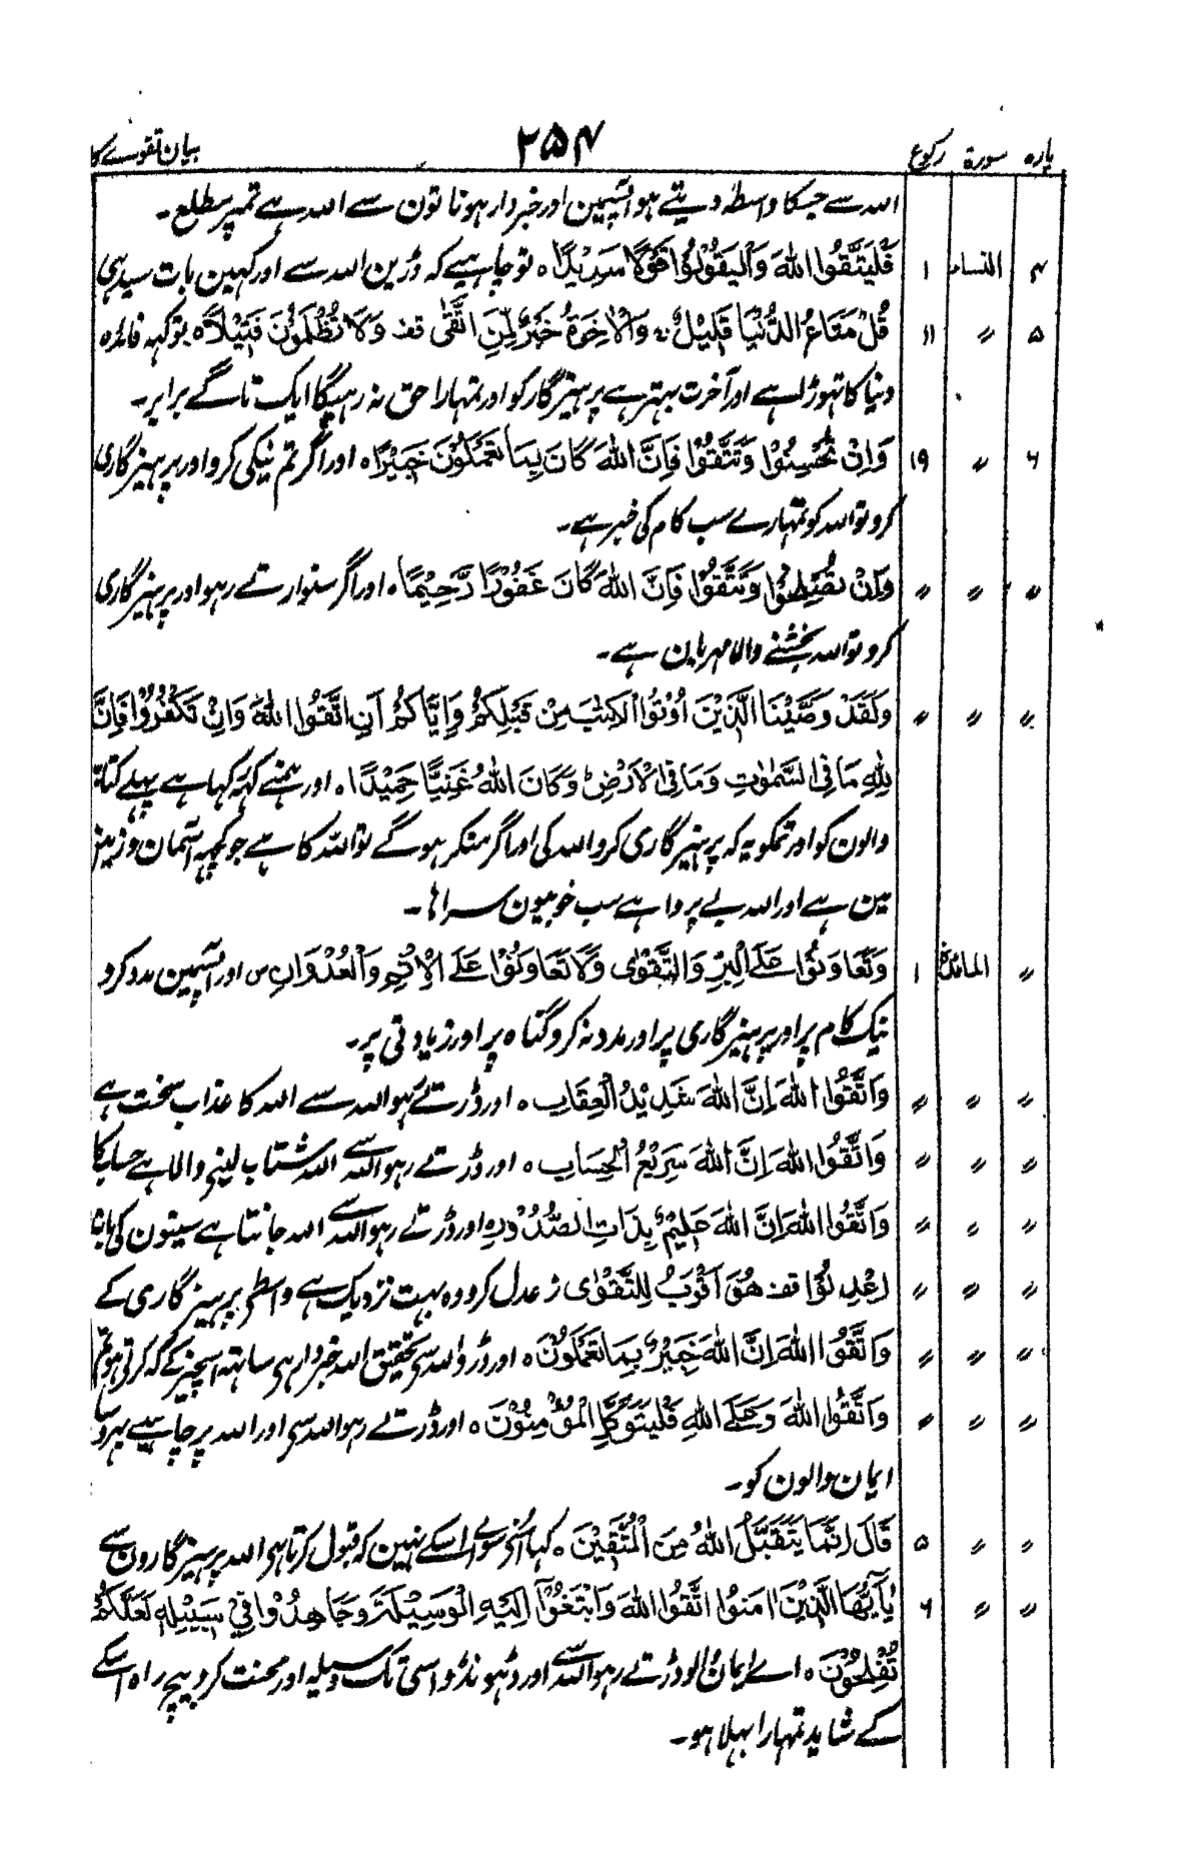 پارہ سورۃ رکوع ۲۵۴ بیان تقوے کا
اللہ سے جسکا واسطہ دیتے ہو آپسمین اور خبردار ہو ناتون سے اللہ ہے تمپر مطلع۔
۴ النساء ۱ فَلْيَتَّقُوا اللّٰهَ وَلْيَقُوْلُوْا قَوْلًا سَدِيْدًا ہ تو چاہیے کہ ڈرین اللہ سے اور کہین بات سیدہی
۵ 〃 ۱۱ قُلْ مَتَاعُ الدُّنْيَا قَلِيْلٌ ۚ وَالْاٰخِرَةُ خَيْرٌ لِّمَنِ اتَّقٰى قف وَلَا تُظْلَمُوْنَ فَتِيْلًا ہ تو کہہ فائدہ
دنیا کا تہوڑا ہے اور آخرت بہتر ہے پرہیزگار کو اور تمہارا حق نہ رہیگا ایک تاگے برابر۔
۶ 〃 ۱۹ وَاِنْ تُحْسِنُوْا وَتَتَّقُوْا فَاِنَّ اللّٰهَ كَانَ بِمَا تَعْمَلُوْنَ خَبِيْرًا ہ اور اگر تم نیکی کرو اور پرہیزگاری
کرو تو اللہ کو تمہارے سب کام کی خبر ہے۔
〃 〃 〃 وَاِنْ تُصْلِحُوْا وَتَتَّقُوْا فَاِنَّ اللّٰهَ كَانَ غَفُوْرًا رَّحِيْمًا ہ اور اگر سنوارتے رہو اور پرہیزگاری
کرو تو اللہ بخشنے والا مہربان ہے۔
〃 〃 〃 وَلَقَدْ وَصَّيْنَا الَّذِيْنَ اُوْتُوا الْكِتٰبَ مِنْ قَبْلِكُمْ وَاِيَّاكُمْ اَنِ اتَّقُوا اللّٰهَ وَاِنْ تَكْفُرُوْا فَاِنَّ
لِلّٰهِ مَا فِى السَّمٰوٰتِ وَمَا فِى الْاَرْضِ ؕ وَكَانَ اللّٰهُ غَنِيًّا حَمِيْدًا ہ اور ہمنے کہہ کہا ہے پہلے کتاب
والون کو اور تمکو یہ کہ پرہیزگاری کرو اللہ کی اور اگر منکر ہوگے تو اللہ کا ہے جو کچہہ آسمان و زمین
مین ہے اور اللہ بے پروا ہے سب خوبیون سراہا۔
〃 المائدۃ ۱ وَتَعَاوَنُوْا عَلَى الْبِرِّ وَالتَّقْوٰى وَلَا تَعَاوَنُوْا عَلَى الْاِثْمِ وَالْعُدْوَانِ س اور آپسمین مدد کرو
نیک کام پر اور پرہیزگاری پر اور مدد نہ کرو گناہ پر اور زیادتی پر۔
〃 〃 〃 وَاتَّقُوا اللّٰهَ اِنَّ اللّٰهَ شَدِيْدُ الْعِقَابِ ہ اور ڈرتے رہو اللہ سے اللہ کا عذاب سخت ہے
〃 〃 〃 وَاتَّقُوا اللّٰهَ اِنَّ اللّٰهَ سَرِيْعُ الْحِسَابِ ہ اور ڈرتے رہو اللہ سے اللہ شتاب لینے والا ہے حساب کا
〃 〃 〃 وَاتَّقُوا اللّٰهَ اِنَّ اللّٰهَ عَلِيْمٌۢ بِذَاتِ الصُّدُوْرِ ہ اور ڈرتے رہو اللہ سے اللہ جانتا ہے سینون کی بات
〃 〃 〃 اِعْدِلُوْا قف هُوَ اَقْرَبُ لِلتَّقْوٰى ز عدل کرو وہ بہت نزدیک ہے واسطے پرہیزگاری کے
〃 〃 〃 وَاتَّقُوا اللّٰهَ اِنَّ اللّٰهَ خَبِيْرٌۢ بِمَا تَعْمَلُوْنَ ہ اور ڈرو اللہ سے تحقیق اللہ خبردار ہے ساتہہ اسچیز کے کہ کرتے ہو تم
〃 〃 〃 وَاتَّقُوا اللّٰهَ وَعَلَى اللّٰهِ فَلْيَتَوَكَّلِ الْمُؤْمِنُوْنَ ہ اور ڈرتے رہو اللہ سے اور اللہ پر چاہیے بہروسا
ایمان والون کو۔
〃 〃 ۵ قَالَ اِنَّمَا يَتَقَبَّلُ اللّٰهُ مِنَ الْمُتَّقِيْنَ ہ کہا سوے اسکے نہین کہ قبول کرتا ہے اللہ پرہیزگارون سے
〃 〃 ۶ يٰٓاَيُّهَا الَّذِيْنَ اٰمَنُوا اتَّقُوا اللّٰهَ وَابْتَغُوْٓا اِلَيْهِ الْوَسِيْلَةَ وَجَاهِدُوْا فِيْ سَبِيْلِهٖ لَعَلَّكُمْ
تُفْلِحُوْنَ ہ اے ایمان والو ڈرتے رہو اللہ سے اور ڈہونڈو اسی تک وسیلہ اور محنت کرو بیچ راہ اسکے
کے شاید تمہارا بہلا ہو۔